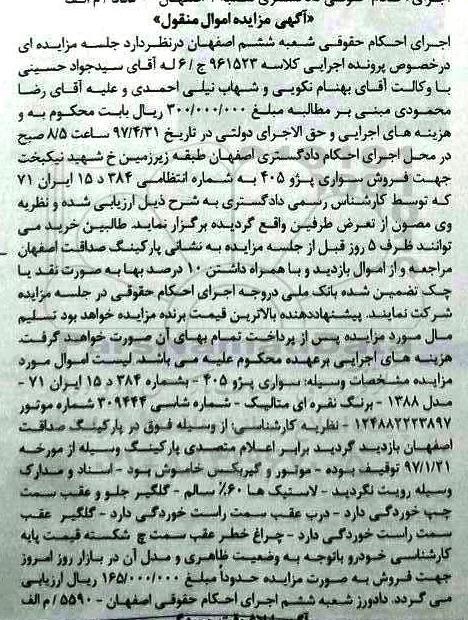 «آگهی مزایده اموال منقول»
اجرای احکام حقوقی شعبه ششم اصفهان در نظر دارد جلسه مزایده ای
در خصوص پرونده اجرایی کلاسه ۹۶۱۵۲۳ ج/۶ له آقای سید جواد حسینی
با وکالت آقای بهنام نکویی و شهاب نیلی احمدی و علیه آقای رضا
محمودی مبنی بر مطالبه مبلغ ۳۰۰/۰۰۰/۰۰۰ ریال بابت محکوم به و
هزینه های اجرایی و حق الاجرای دولتی در تاریخ ۹۷/۴/۳۱ ساعت ۸/۵ صبح
در محل اجرای احکام دادگستری اصفهان طبقه زیرزمین خ شهید نیکبخت
جهت فروش سواری پژو ۴۰۵ به شماره انتظامی ۳۸۴ د ۱۵ ایران ۷۱
که توسط کارشناس رسمی دادگستری به شرح ذیل ارزیابی شده و نظریه
وی مصون از تعرض طرفین واقع گردیده برگزار نماید. طالبین خرید می
توانند ظرف ۵ روز قبل از جلسه مزایده به نشانی پارکینگ صداقت اصفهان
مراجعه و از اموال بازدید و با همراه داشتن ۱۰ درصد بها به صورت نقد یا
چک تضمین شده بانک ملی در وجه اجرای احکام حقوقی در جلسه مزایده
شرکت نمایند. پیشنهاددهنده بالاترین قیمت برنده مزایده خواهد بود تسلیم
مال مورد مزایده پس از پرداخت تمام بهای آن صورت خواهد گرفت.
هزینه های اجرایی بر عهده محکوم علیه می باشد. لیست اموال مورد
مزایده مشخصات وسیله: سواری پژو ۴۰۵ - بشماره ۳۸۴ د ۱۵ ایران ۷۱ -
مدل ۱۳۸۸ - برنگ نقره ای متالیک - شماره شاسی ۳۰۹۴۴۴ شماره موتور
۱۲۴۸۸۲۲۲۳۸۹۷ - نظریه کارشناسی: از وسیله فوق در پارکینگ صداقت
اصفهان بازدید گردید برابر اعلام متصدی پارکینگ وسیله از مورخه
۹۷/۱/۲۱ توقیف بوده - موتور و گیربکس خاموش بود - اسناد و مدارک
وسیله رویت نگردید - لاستیک ها ۶۰٪ سالم - گلگیر جلو و عقب سمت
چپ خوردگی دارد - درب عقب سمت راست خوردگی دارد - گلگیر عقب
سمت راست خوردگی دارد - چراغ خطر عقب سمت چ شکسته قیمت پایه
کارشناسی خودرو باتوجه به وضعیت ظاهری و مدل آن در بازار روز امروز
جهت فروش به صورت مزایده حدوداً مبلغ ۱۶۵/۰۰۰/۰۰۰ ریال ارزیابی
می گردد. دادورز شعبه ششم اجرای احکام حقوقی اصفهان - ۵۵۹۰ / م الف